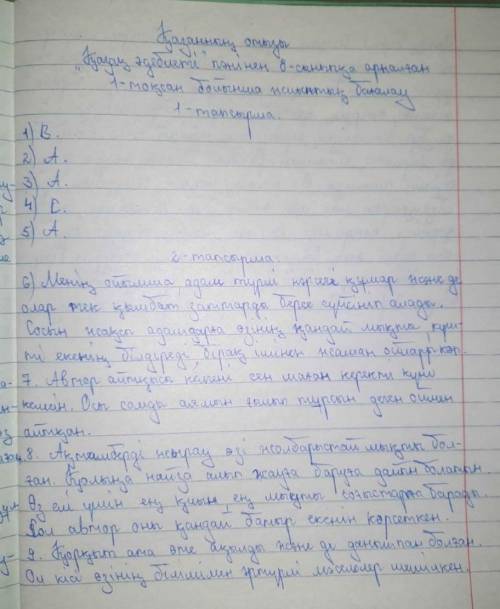 Қазанның отызы
"Қазақ әдебиеті" пәнінен 8-сыныпқа арналған
1-тоқсан бойынша жиынтық бағалау
1-тапсырма.
1) В.
2) А.
3) А.
4) С.
5) А.
2-тапсырма.
6) Менің ойымша, адам түрлі нәрсеге құмар және де
олар тек қымбат заттарды берсе сүйсініп алады.
Сосын жақсы адамдарға өзінің қандай мықты,
ті екенің білдіреді, бірақ ішінен жаман
7. Автор айтқысы келгені сен маған керекті күні
келмін. Осы сәтте тұрсын деген оймен
айтқан.
8. Ақтамберді жырау өзі жолбарыстай мықты бол-
ған. Қолыңа найза алып жауға баруға дайын болатын.
Өз елі үшін ең қиын ең мықты соғыстарға барады.
Бұл автор оны қандай батыр екенін көрсеткен.
9. Қорқыт ата өте ақылды және де данышпан болған.
Ол кісі өзінің білімімен әртүрлі мәселелер шешкен.